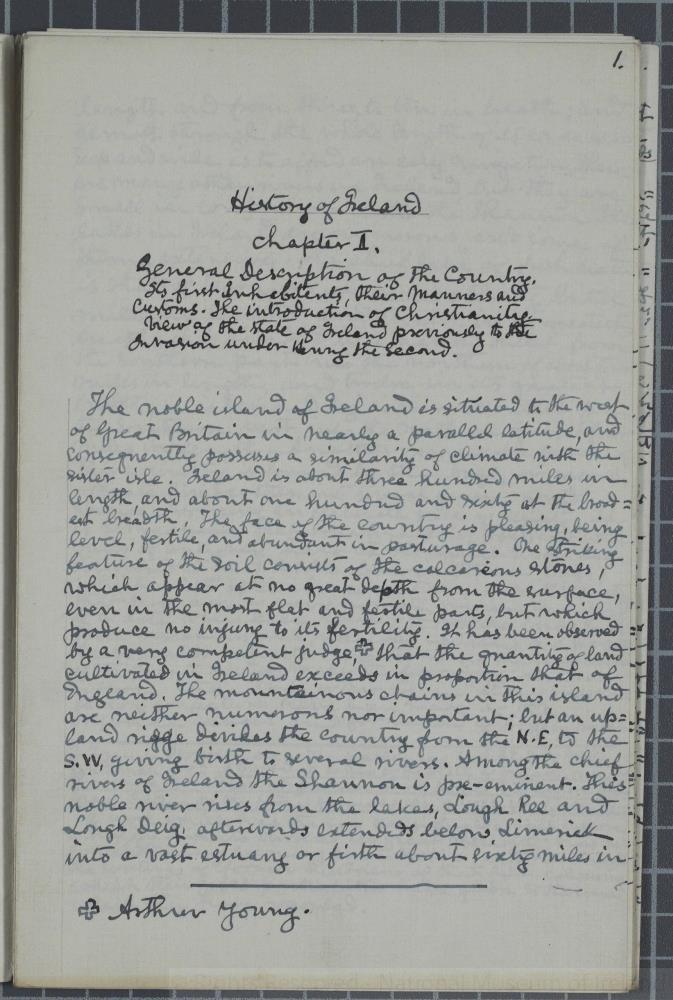 1.
History of Ireland
Chapter I.
General Description of the Country.
Its first Inhabitents, their Manners and
Customs. The introduction of Christianity.
View of the State of Ireland previously to the
Invasion under Henry the Second.
The noble island of Ireland is situated to the west
of Great Britain in nearly a parallel latitude, and
consequently possesses a similarity of climate with the
sister isle. Ireland is about three hundred miles in
length, and about one hundred and sixty at the broad=
est breadth. The face of the country is pleasing, being
level, fertile, and abundant in pasturage. One striking
feature of the soil consists of the calcareous stones,
which appear at no great depth from the surface,
even in the most flat and fertile parts, but which
produce no injury to its fertility. It has been observed
by a very competent judge ✠ that the quantity of land
cultivated in Ireland exceeds in proportion that of
England. The mountainous chains in this island
are neither numerous nor important; but an up=
land rigge devides the country from the N.E, to the
S.W, giving birth to several rivers. Among the chief
rivers of Ireland the Shannon is pre-eminent. This
noble river rises from the lakes, Lough Ree and
Lough Deig, afterwards extended below Limerick
into a vast estuary or firth about sixty miles in
✠ Arthur Young.